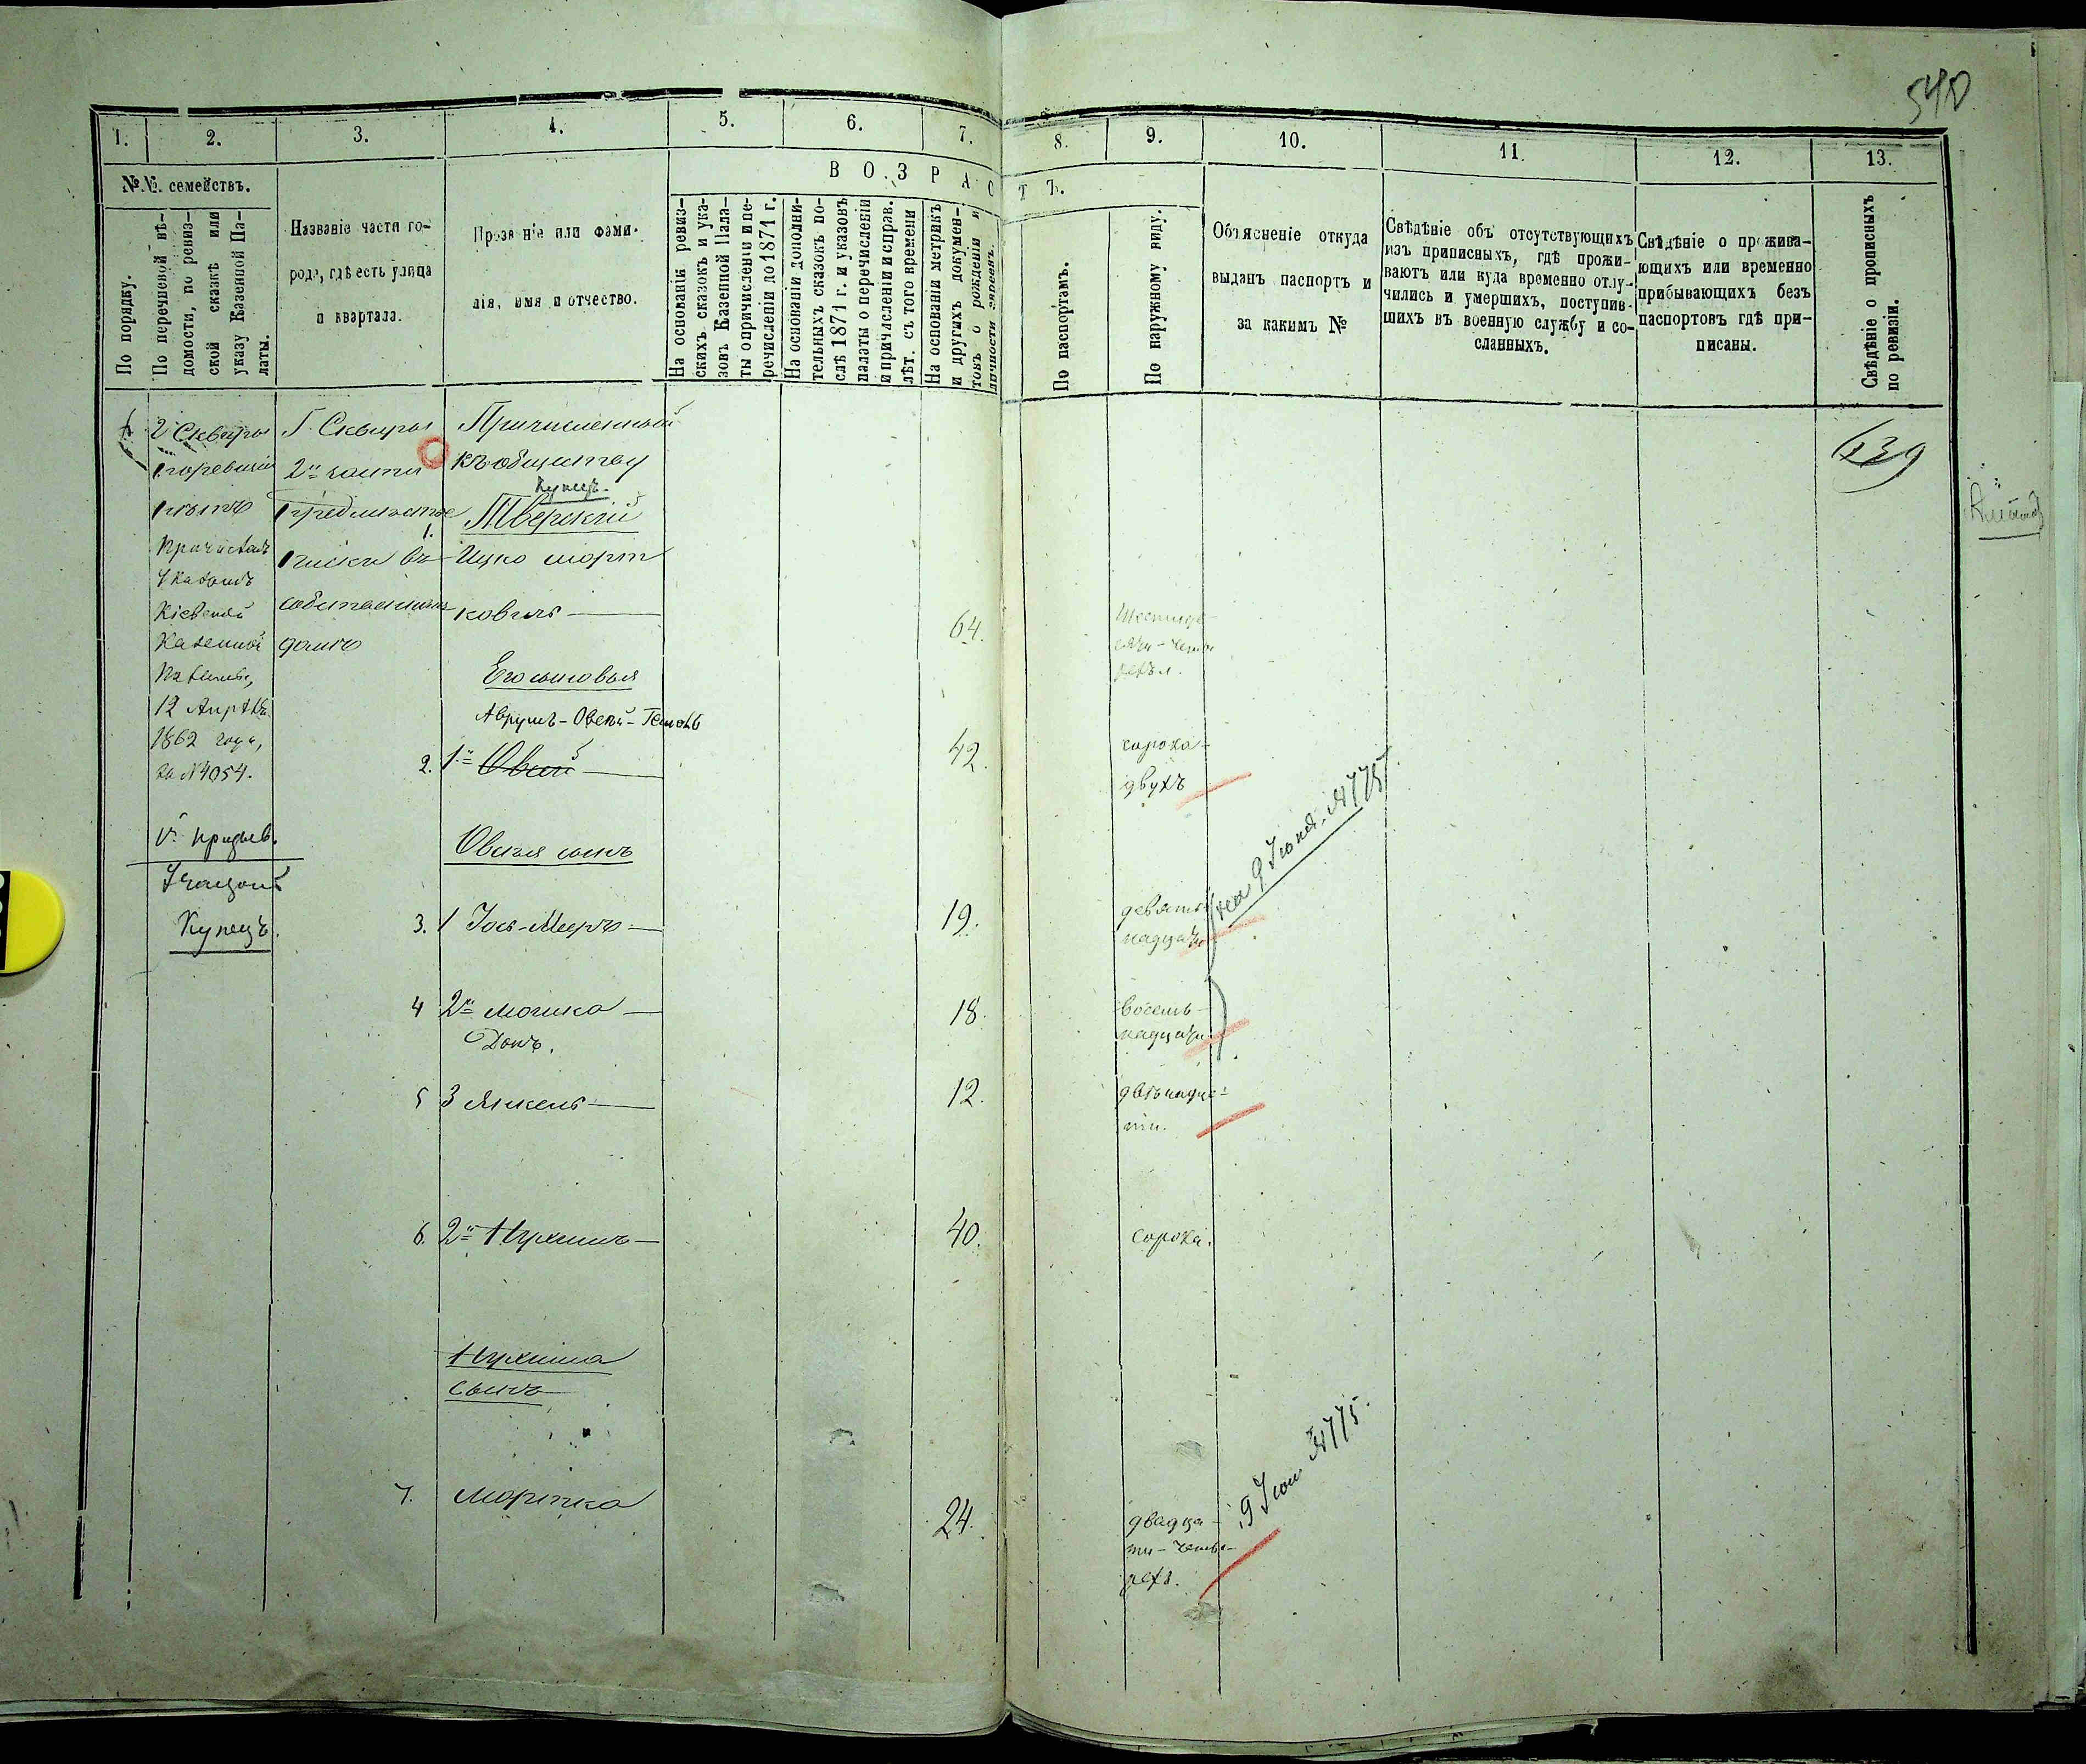 540
1.
2.
3.
4.
5.
6.
7.
8.
9.
10.
11.
12.
13.
№№. семействъ.
По порядку.
По перечневой вѣ-
домости, по ревиз-
ской сказкѣ или
указу Казенной Па-
латы.
Названіе части го-
рода, гдѣ есть улица
и квартала.
Прозваніе или фами-
лія, имя и отчество.
ВОЗРАСТЪ.
На основаніи ревиз-
скихъ сказокъ и ука-
зовъ Казенной Пала-
ты опричисленіи и пе-
речисленіи до 1871 г.
На основаніи дополни-
тельныхъ сказокъ по-
слѣ 1871 г. и указовъ
палаты о перечисленіи
и причисленіи и справ.
лѣт. съ того времени
На основаніи метрикъ
и другихъ докумен-
товъ о рожденіи и
личности евреевъ.
По паспортамъ.
По наружному виду.
Объясненіе откуда
выданъ паспортъ и
за какимъ №
Свѣдѣніе объ отсутствующихъ
изъ приписныхъ, гдѣ прожи-
ваютъ или куда временно отлу-
чились и умершихъ, поступив-
шихъ въ военную службу и со-
сланныхъ.
Свѣдѣніе о прожива-
ющихъ или временно
прибывающихъ безъ
паспортовъ гдѣ при-
писаны.
Свѣдѣніе о прописныхъ
по ревизіи.
2 Сквыры
Причисленъ
Указомъ
Кіевской
Казенной
Палаты,
12 Апрѣля
1862 года,
за №4054.
Купецъ.
Г. Сквыры
2й части
предмѣстье
собственномъ
домѣ
Причисленный
къ обществу
Купец.
Тверскій
1. Ицко Морт
ковичъ
64.
шестиде-
сяти-четы
рехъ л.
Его сыновья
Аврумъ-Овсій-
2. 1й Овсій
42.
сорока-
двухъ
Овсія сынъ
3. 1 Іось-Мееръ
19.
девят-
надцати
на 9 Іюня №775
4 2й Мошко
Донъ.
18.
восемь-
надцати
5 3 Янкель
12.
двѣнадца-
ти.
6. 2й Нухимъ
40.
сорока.
Нухима
сынъ
7. Мортко
24.
двадца-
ти-четы-
рехъ.
9 Іюн №775.